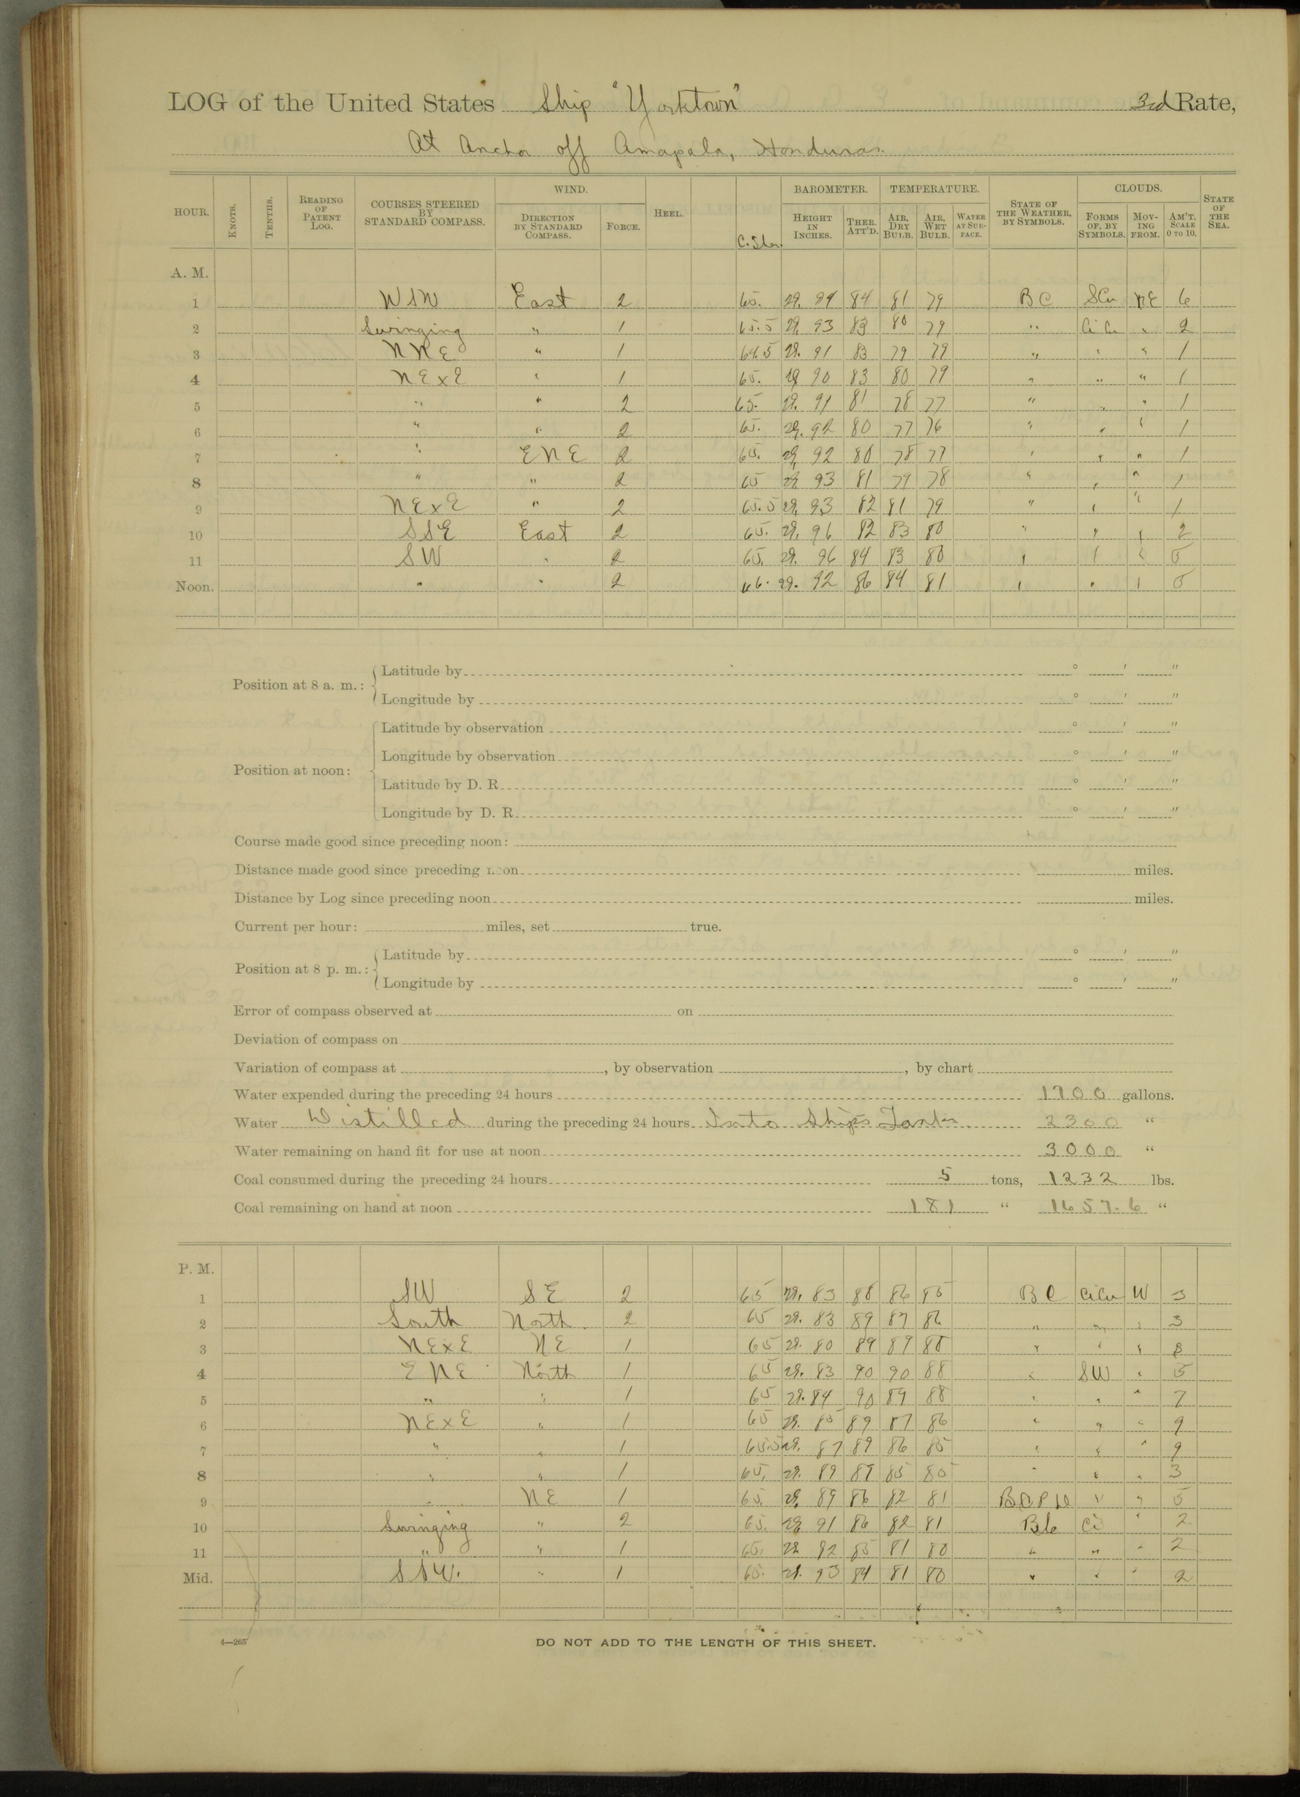 LOG of the United States Ship "Yorktown" 3rd Rate,
At Anchor off Amapala, Honduras
HOUR. KNOTS. TENTHS. READING OF PATENT LOG. COURSES STEERED BY STANDARD COMPASS. WIND. DIRECTION BY STANDARD COMPASS. FORCE. HEEL. BAROMETER. HEIGHT IN INCHES. THER. ATT'D. TEMPERATURE. AIR, DRY BULB. AIR, WET BULB. WATER AT SURFACE. STATE OF THE WEATHER, BY SYMBOLS. CLOUDS. FORMS OF, BY SYMBOLS. MOVING FROM. AM'T. SCALE 0 TO 10. STATE OF THE SEA.
A. M.
1 WSW East 2 65. 29. 94 84 81 79 BC SCu NE 6
2 Swinging " 1 65.5 29. 93 83 80 79 " Ci Cu " 2
3 NNE " 1 64.5 29. 91 83 79 79 " " " 1
4 NExE " 1 65. 29 90 83 80 79 " " " 1
5 " " 2 65. 29. 91 81 78 77 " " " 1
6 " " 2 65. 29. 92 80 77 76 " " " 1
7 " ENE 2 65. 29. 92 80 78 77 " " " 1
8 " " 2 65 29. 93 81 79 78 " " " 1
9 NExE " 2 65.5 29. 93 82 81 79 " " " 1
10 SSE East 2 65. 29. 96 82 83 80 " " " 2
11 SW " 2 65. 29. 96 84 83 80 " " " 5
Noon. " " 2 66. 29. 92 86 84 81 " " " 5
Position at 8 a. m.: Latitude by ° ' "
Longitude by ° ' "
Position at noon: Latitude by observation ° ' "
Longitude by observation ° ' "
Latitude by D. R. ° ' "
Longitude by D. R. ° ' "
Course made good since preceding noon:
Distance made good since preceding noon miles.
Distance by Log since preceding noon miles.
Current per hour: miles, set true.
Position at 8 p. m.: Latitude by ° ' "
Longitude by ° ' "
Error of compass observed at on
Deviation of compass on
Variation of compass at , by observation , by chart
Water expended during the preceding 24 hours 1700 gallons.
Water Distilled during the preceding 24 hours Into Ship's Tanks 2300 "
Water remaining on hand fit for use at noon 3000 "
Coal consumed during the preceding 24 hours 5 tons, 1232 lbs.
Coal remaining on hand at noon 181 " 1657.6 "
P. M.
1 SW SE 2 65 29. 83 88 86 85 BC CiCu W 3
2 South North 2 65 29. 83 89 87 86 " " " 3
3 NExE NE 1 65 29. 80 89 89 88 " " " 8
4 ENE North 1 65 29. 83 90 90 88 " SW " 5
5 " " 1 65 29. 84 90 89 88 " " " 7
6 NExE " 1 65 29. 85 89 87 86 " " " 9
7 " " 1 65.5 29. 87 89 86 85 " " " 9
8 " " 1 65. 29. 89 87 85 80 " " " 3
9 " NE 1 65. 29. 89 86 82 81 " " 5
10 Swinging " 2 65. 29 91 86 82 81 Bc Ci " 2
11 " " 1 65. 29 92 85 81 80 " " " 2
Mid. SSW. " 1 65. 29. 93 84 81 80 " " " 2
4—265
DO NOT ADD TO THE LENGTH OF THIS SHEET.